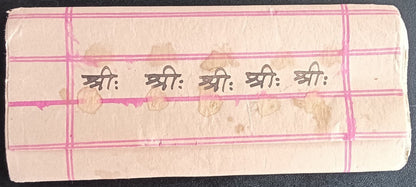 श्रीः श्रीः श्रीः श्रीः श्रीः